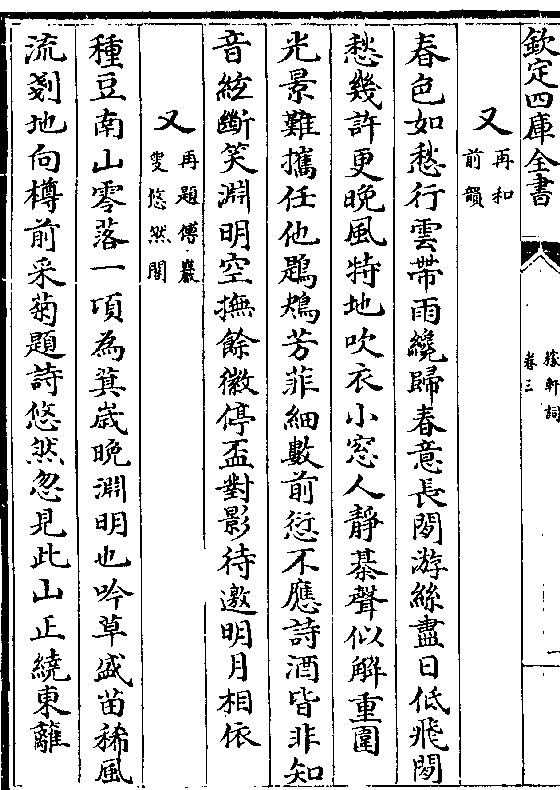 欽定四庫全書
稼軒詞
卷三
又再和前韻
春色如愁行雲帶雨纔歸春意長閒游絲盡日低飛閒
愁幾許更晚風特地吹衣小窓人靜棊聲似解重圍
光景難攜任他鶗鴂芳菲細數前愆不應詩酒皆非知
音絃斷笑淵明空撫餘徽停盃對影待邀明月相依
又再題傅巖叟悠然閣
種豆南山零落一項為萁歲晚淵明也吟草盛苗稀風
流剗地向樽前采菊題詩悠然忽見此山正繞東籬